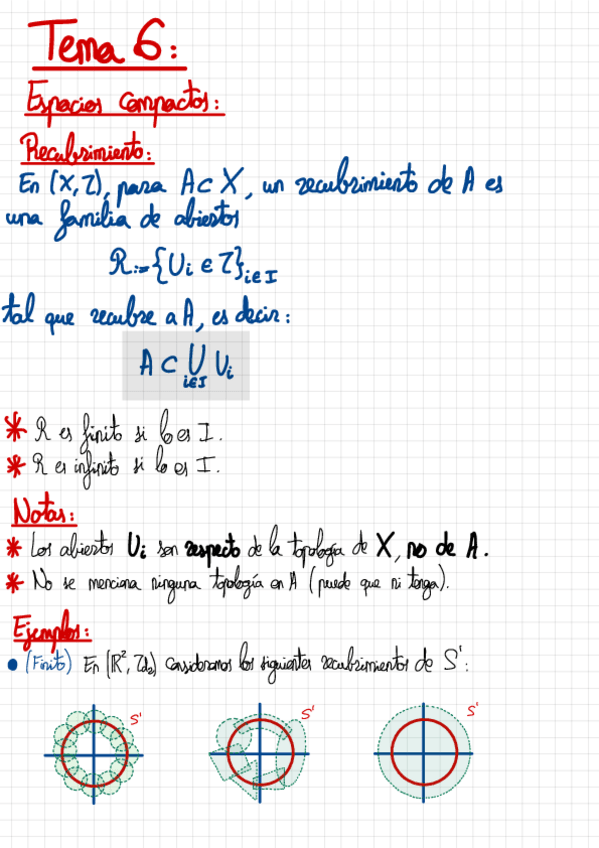 Tema 6:
Espacios Compactos:
Recubrimiento:
En (X,τ), para A⊂X, un recubrimiento de A es
una familia de abiertos
R:={Uᵢ∈τ}ᵢ∈I
tal que recubre a A, es decir:
A⊂⋃ᵢ∈I Uᵢ
* R es finito si lo es I.
* R es infinito si lo es I.
Notas:
* Los abiertos Uᵢ son respecto de la topología de X, no de A.
* No se menciona ninguna topología en A (puede que ni tenga).
Ejemplos:
• (Finito) En (ℝ², τd₂) consideramos los siguientes recubrimientos de S¹:
S¹ S¹ S¹